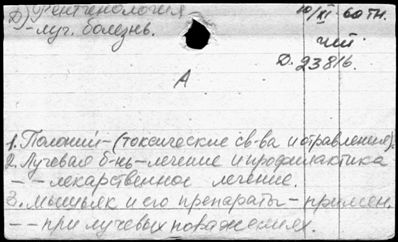 Д) Рентгенология
10/XI-60 тн.
- луч. болезнь.
чит
Д. 23816.
А
1. Полоний - (токсические св-ва и отравления).
2. Лучевая б-нь - лечение и профилактика
- - лекарственное лечение.
3. Мышьяк и его препараты - примен.
- - при лучевых поражениях.